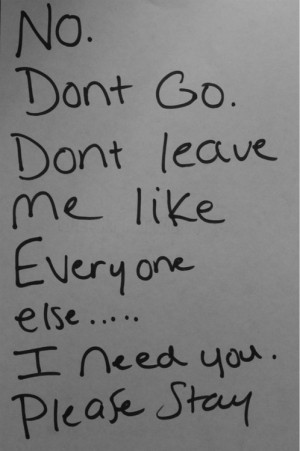 No.
Dont Go.
Dont leave
me like
Everyone
else.....
I need you.
Please Stay